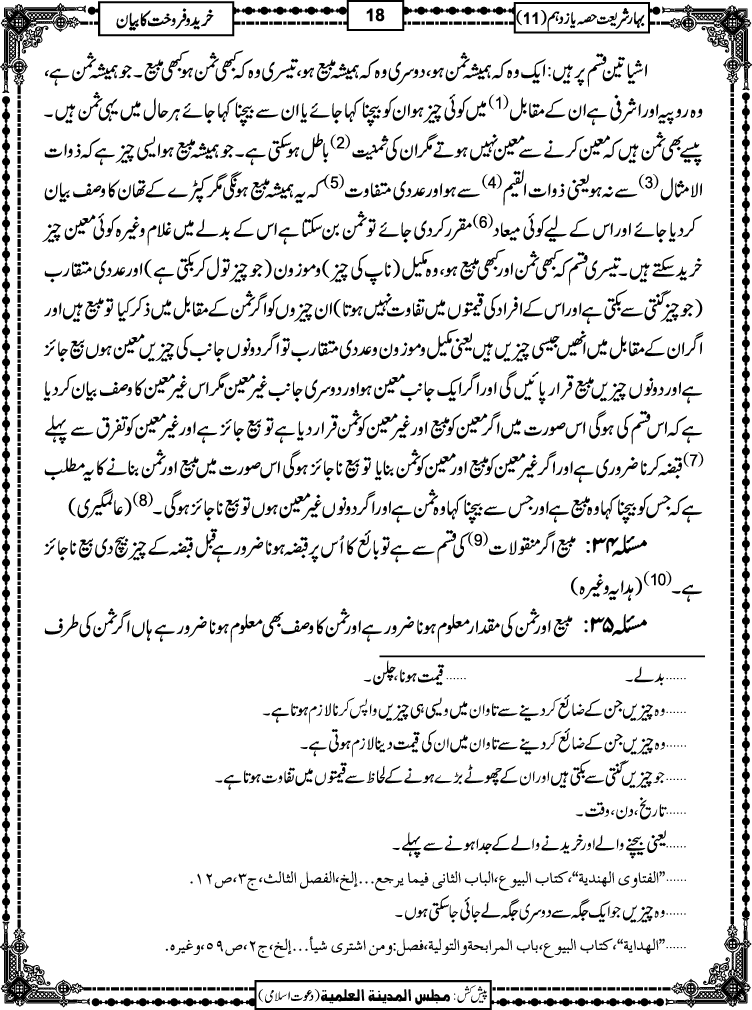 بہار شریعت حصہ یازدہم (11)
18
خرید و فروخت کا بیان
اشیا تین قسم پر ہیں: ایک وہ کہ ہمیشہ ثمن ہو، دوسری وہ کہ ہمیشہ مبیع ہو، تیسری وہ کہ کبھی ثمن ہو کبھی مبیع۔ جو ہمیشہ ثمن ہے،
وہ روپیہ اور اشرفی ہے ان کے مقابل (1) میں کوئی چیز ہو ان کو بیچنا کہا جائے یا ان سے بیچنا کہا جائے ہر حال میں یہی ثمن ہیں۔
پیسے بھی ثمن ہیں کہ معین کرنے سے معین نہیں ہوتے مگر ان کی ثمنیت (2) باطل ہو سکتی ہے۔ جو ہمیشہ مبیع ہو ایسی چیز ہے کہ ذوات
الامثال (3) سے نہ ہو یعنی ذوات القیم (4) سے ہو اور عددی متفاوت (5) کہ یہ ہمیشہ مبیع ہونگی مگر کپڑے کے تھان کا وصف بیان
کر دیا جائے اور اس کے لیے کوئی میعاد (6) مقرر کر دی جائے تو ثمن بن سکتا ہے اس کے بدلے میں غلام وغیرہ کوئی معین چیز
خرید سکتے ہیں۔ تیسری قسم کہ کبھی ثمن اور کبھی مبیع ہو، وہ مکیل (ناپ کی چیز) و موزون (جو چیز تول کر بکتی ہے) اور عددی متقارب
(جو چیز گنتی سے بکتی ہے اور اس کے افراد کی قیمتوں میں تفاوت نہیں ہوتا) ان چیزوں کو اگر ثمن کے مقابل میں ذکر کیا تو مبیع ہیں اور
اگر ان کے مقابل میں انھیں جیسی چیزیں ہیں یعنی مکیل و موزون و عددی متقارب تو اگر دونوں جانب کی چیزیں معین ہوں بیع جائز
ہے اور دونوں چیزیں مبیع قرار پائیں گی اور اگر ایک جانب معین ہو اور دوسری جانب غیر معین مگر اس غیر معین کا وصف بیان کر دیا
ہے کہ اس قسم کی ہوگی اس صورت میں اگر معین کو مبیع اور غیر معین کو ثمن قرار دیا ہے تو بیع جائز ہے اور غیر معین کو تفرق سے پہلے
(7) قبضہ کرنا ضروری ہے اور اگر غیر معین کو مبیع اور معین کو ثمن بنایا تو بیع ناجائز ہوگی اس صورت میں مبیع اور ثمن بنانے کا یہ مطلب
ہے کہ جس کو بیچنا کہا وہ مبیع ہے اور جس سے بیچنا کہا وہ ثمن ہے اور اگر دونوں غیر معین ہوں تو بیع ناجائز ہوگی۔ (8) (عالمگیری)
مسئلہ ۳۴: مبیع اگر منقولات (9) کی قسم سے ہے تو بائع کا اُس پر قبضہ ہونا ضرور ہے قبل قبضہ کے چیز بیچ دی بیع ناجائز
ہے۔ (10) (ہدایہ وغیرہ)
مسئلہ ۳۵: مبیع اور ثمن کی مقدار معلوم ہونا ضرور ہے اور ثمن کا وصف بھی معلوم ہونا ضرور ہے ہاں اگر ثمن کی طرف
......بدلے۔ ......قیمت ہونا، چلن۔
......وہ چیزیں جن کے ضائع کر دینے سے تاوان میں ویسی ہی چیزیں واپس کرنا لازم ہوتا ہے۔
......وہ چیزیں جن کے ضائع کر دینے سے تاوان میں ان کی قیمت دینا لازم ہوتی ہے۔
......جو چیزیں گنتی سے بکتی ہیں اور ان کے چھوٹے بڑے ہونے کے لحاظ سے قیمتوں میں تفاوت ہوتا ہے۔
......تاریخ، دن، وقت۔
......یعنی بیچنے والے اور خریدنے والے کے جدا ہونے سے پہلے۔
......"الفتاوی الهندیة"، کتاب البیوع، الباب الثانی فیما یرجع...إلخ، الفصل الثالث، ج۳، ص۱۲.
......وہ چیزیں جو ایک جگہ سے دوسری جگہ لے جائی جاسکتی ہوں۔
......"الهدایة"، کتاب البیوع، باب المرابحة والتولیة، فصل: ومن اشتری شیأ...إلخ، ج۲، ص۵۹، وغیره.
پیش کش: مجلس المدینة العلمیة (دعوت اسلامی)